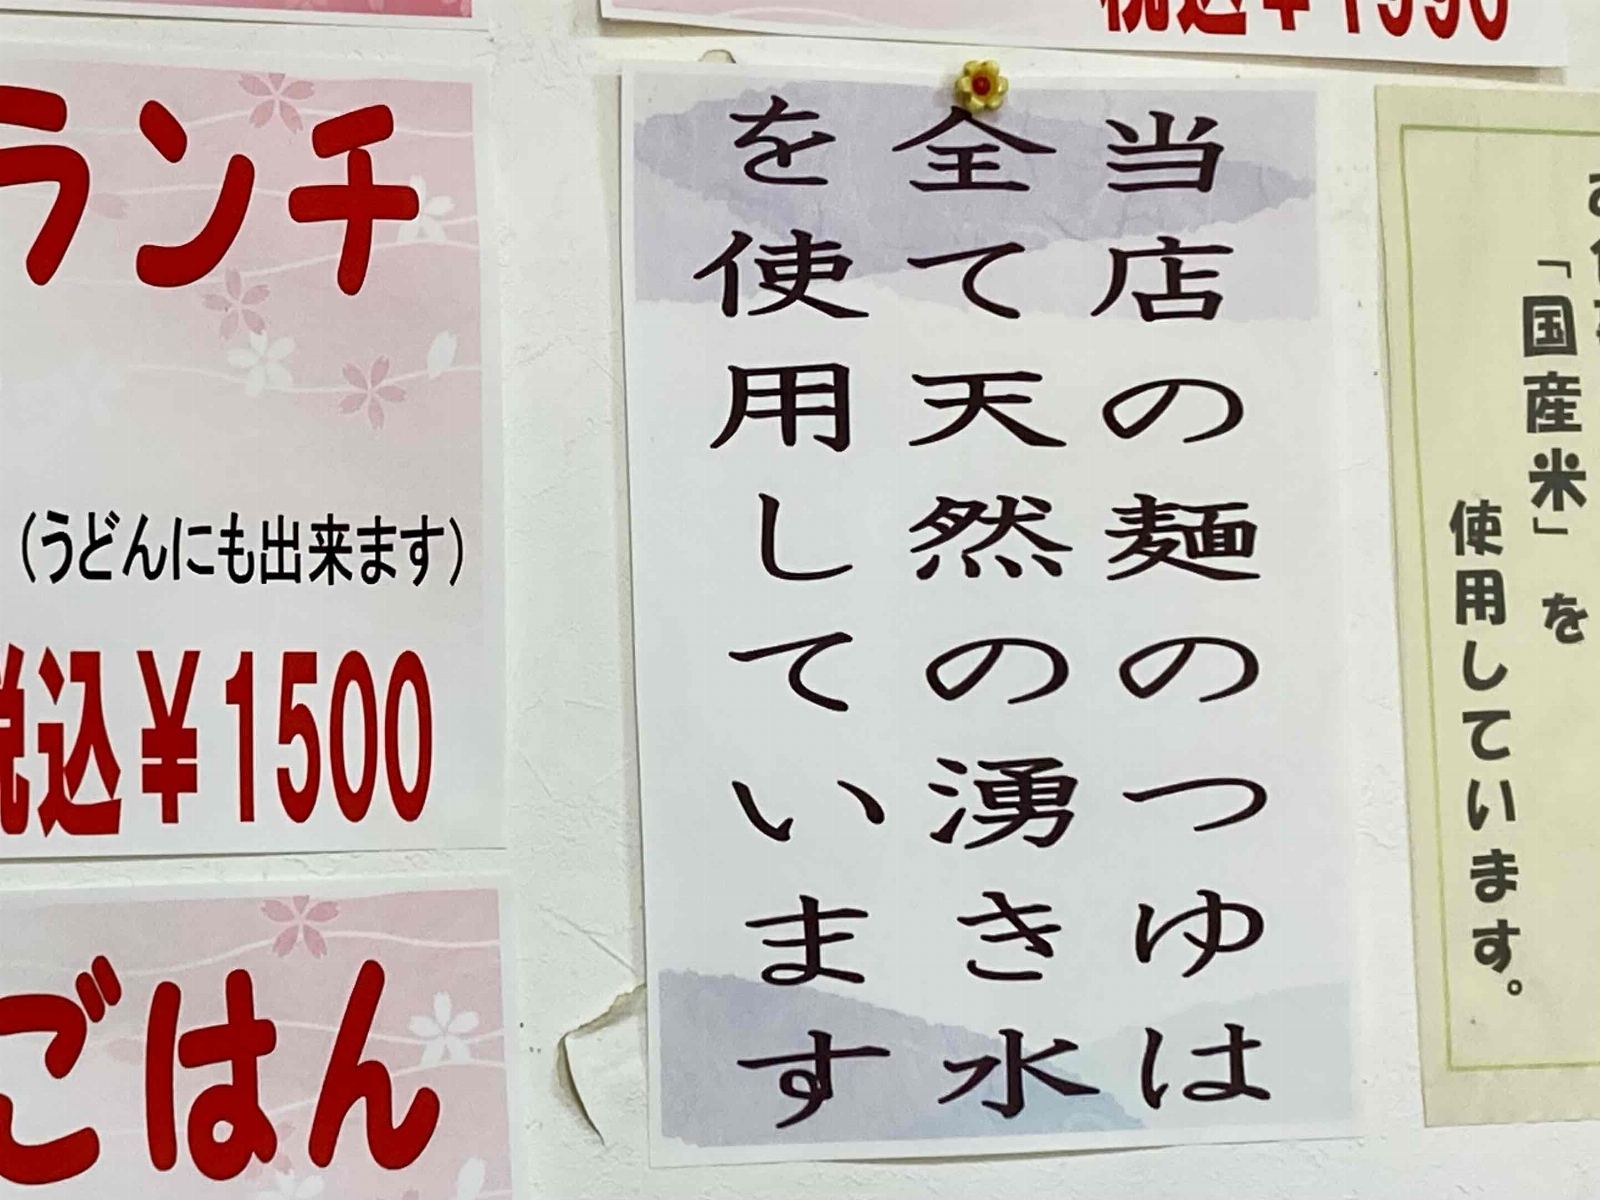 税込¥1990
ランチ
(うどんにも出来ます)
税込¥1500
ごはん
当店の麺のつゆは
全て天然の湧き水
を使用しています
「国産米」を
使用しています。